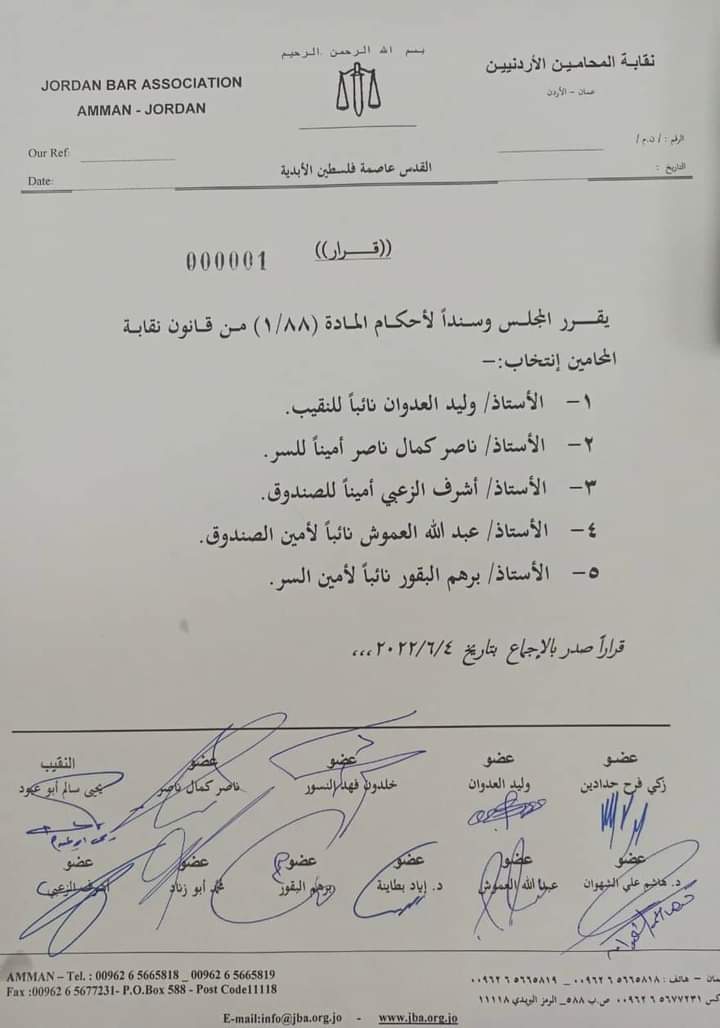 بسم الله الرحمن الرحيم
نقابة المحامين الأردنيين
عمان - الأردن
JORDAN BAR ASSOCIATION
AMMAN - JORDAN
الرقم : / ن.م /
التاريخ :
Our Ref:
Date:
القدس عاصمة فلسطين الأبدية
((قـــرار))
000001
يقـــرر المجلس وسنداً لأحكام المادة (١/٨٨) مـن قـانون نقابـة
المحامين إنتخاب:-
١- الأستاذ/ وليد العدوان نائباً للنقيب.
٢- الأستاذ/ ناصر كمال ناصر أميناً للسر.
٣- الأستاذ/ أشرف الزعبي أميناً للصندوق.
٤- الأستاذ/ عبد الله العموش نائباً لأمين الصندوق.
٥- الأستاذ/ برهم البقور نائباً لأمين السر.
قراراً صدر بالإجماع بتاريخ ٢٠٢٢/٦/٤،،،
عضو عضو عضو عضو النقيب
زكي فرح حدادين وليد العدوان خلدون فهد النسور ناصر كمال ناصر يحيى سالم أبو عبود
عضو عضو عضو عضو عضو عضو
د. هاشم علي الشهوان عبد الله العموش د. إياد بطاينة برهم البقور محمد أبو زناد أشرف الزعبي
AMMAN – Tel. : 00962 6 5665818 _ 00962 6 5665819
Fax :00962 6 5677231- P.O.Box 588 - Post Code11118
ـمان – هاتف : ٥٦٦٥٨١٨ ٦ ٠٠٩٦٢ _ ٥٦٦٥٨١٩ ٦ ٠٠٩٦٢
ـكس ٥٦٧٧٢٣١ ٦ ٠٠٩٦٢ ص.ب ٥٨٨ـ الرمز البريدي ١١١١٨
E-mail:info@jba.org.jo - www.jba.org.jo